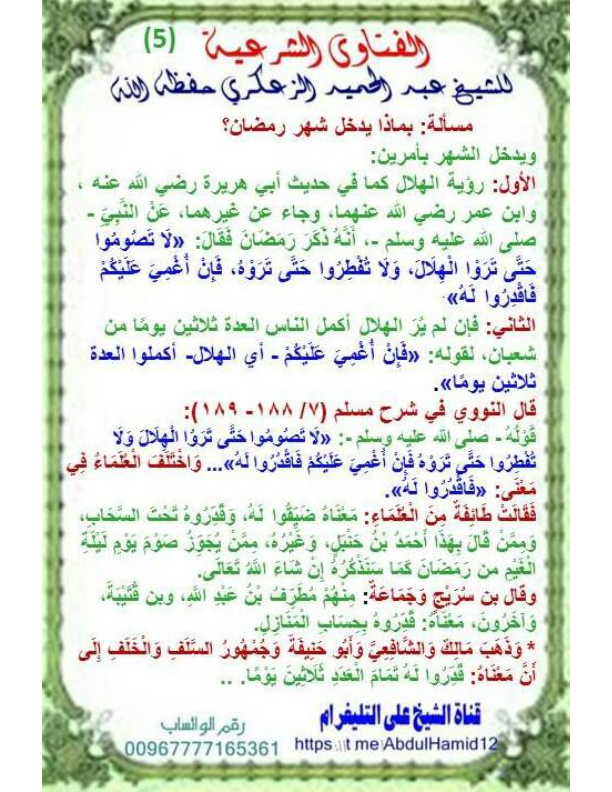 الفتاوى الشرعية (5)
للشيخ عبد الحميد الزعكري حفظه الله
مسألة: بماذا يدخل شهر رمضان؟
ويدخل الشهر بأمرين:
الأول: رؤية الهلال كما في حديث أبي هريرة رضي الله عنه ،
وابن عمر رضي الله عنهما، وجاء عن غيرهما، عَنْ النَّبِيَ -
صلى الله عليه وسلم -، أَنَّهُ ذَكَرَ رَمَضَانَ فَقَالَ: «لَا تَصُومُوا
حَتَّى تَرَوْا الْهِلَالَ، وَلَا تُفْطِرُوا حَتَّى تَرَوْهُ، فَإِنْ أُغْمِيَ عَلَيْكُمْ
فَاقْدِرُوا لَهُ»
الثاني: فإن لم يُرَ الهلال أكمل الناس العدة ثلاثين يومًا من
شعبان، لقوله: «فَإِنْ أُغْمِيَ عَلَيْكُمْ - أي الهلال- أكملوا العدة
ثلاثين يومًا».
قال النووي في شرح مسلم (٧/ ١٨٨- ١٨٩):
قَوْلُهُ - صلى الله عليه وسلم -: «لَا تَصُومُوا حَتَّى تَرَوُا الْهِلَالَ وَلَا
تُفْطِرُوا حَتَّى تَرَوْهُ فَإِنْ أُغْمِيَ عَلَيْكُمْ فَاقْدُرُوا لَهُ»... وَاخْتَلَفَ الْعُلَمَاءُ فِي
مَعْنَى: «فَاقْدُرُوا لَهُ».
فَقَالَتْ طَائِفَةٌ مِنَ الْعُلَمَاءِ: مَعْنَاهُ ضَيِّقُوا لَهُ، وَقَدِّرُوهُ تَحْتَ السَّحَابِ،
وَمِمَّنْ قَالَ بِهَذَا أَحْمَدُ بْنُ حَنْبَلٍ، وَغَيْرُهُ، مِمَّنْ يُجَوِّزُ صَوْمَ يَوْمِ لَيْلَةِ
الْغَيْمِ من رَمَضَانَ كَمَا سَنَذْكُرُهُ إِنْ شَاءَ اللَّهُ تَعَالَى.
وقال بن سُرَيْجٍ وَجَمَاعَةٌ: مِنْهُمْ مُطَرِّفُ بْنُ عَبْدِ اللَّهِ، وبن قُتَيْبَةَ،
وَآخَرُونَ، مَعْنَاهُ: قَدِّرُوهُ بِحِسَابِ الْمَنَازِلِ.
* وَذَهَبَ مَالِكٌ وَالشَّافِعِيُّ وَأَبُو حَنِيفَةَ وَجُمْهُورُ السَّلَفِ وَالْخَلَفِ إِلَى
أَنَّ مَعْنَاهُ: قَدِّرُوا لَهُ تَمَامَ الْعَدَدِ ثَلَاثِينَ يَوْمًا. ..
قناة الشيخ على التليغرام
https:\\t.me\AbdulHamid12
رقم الواتساب
00967777165361